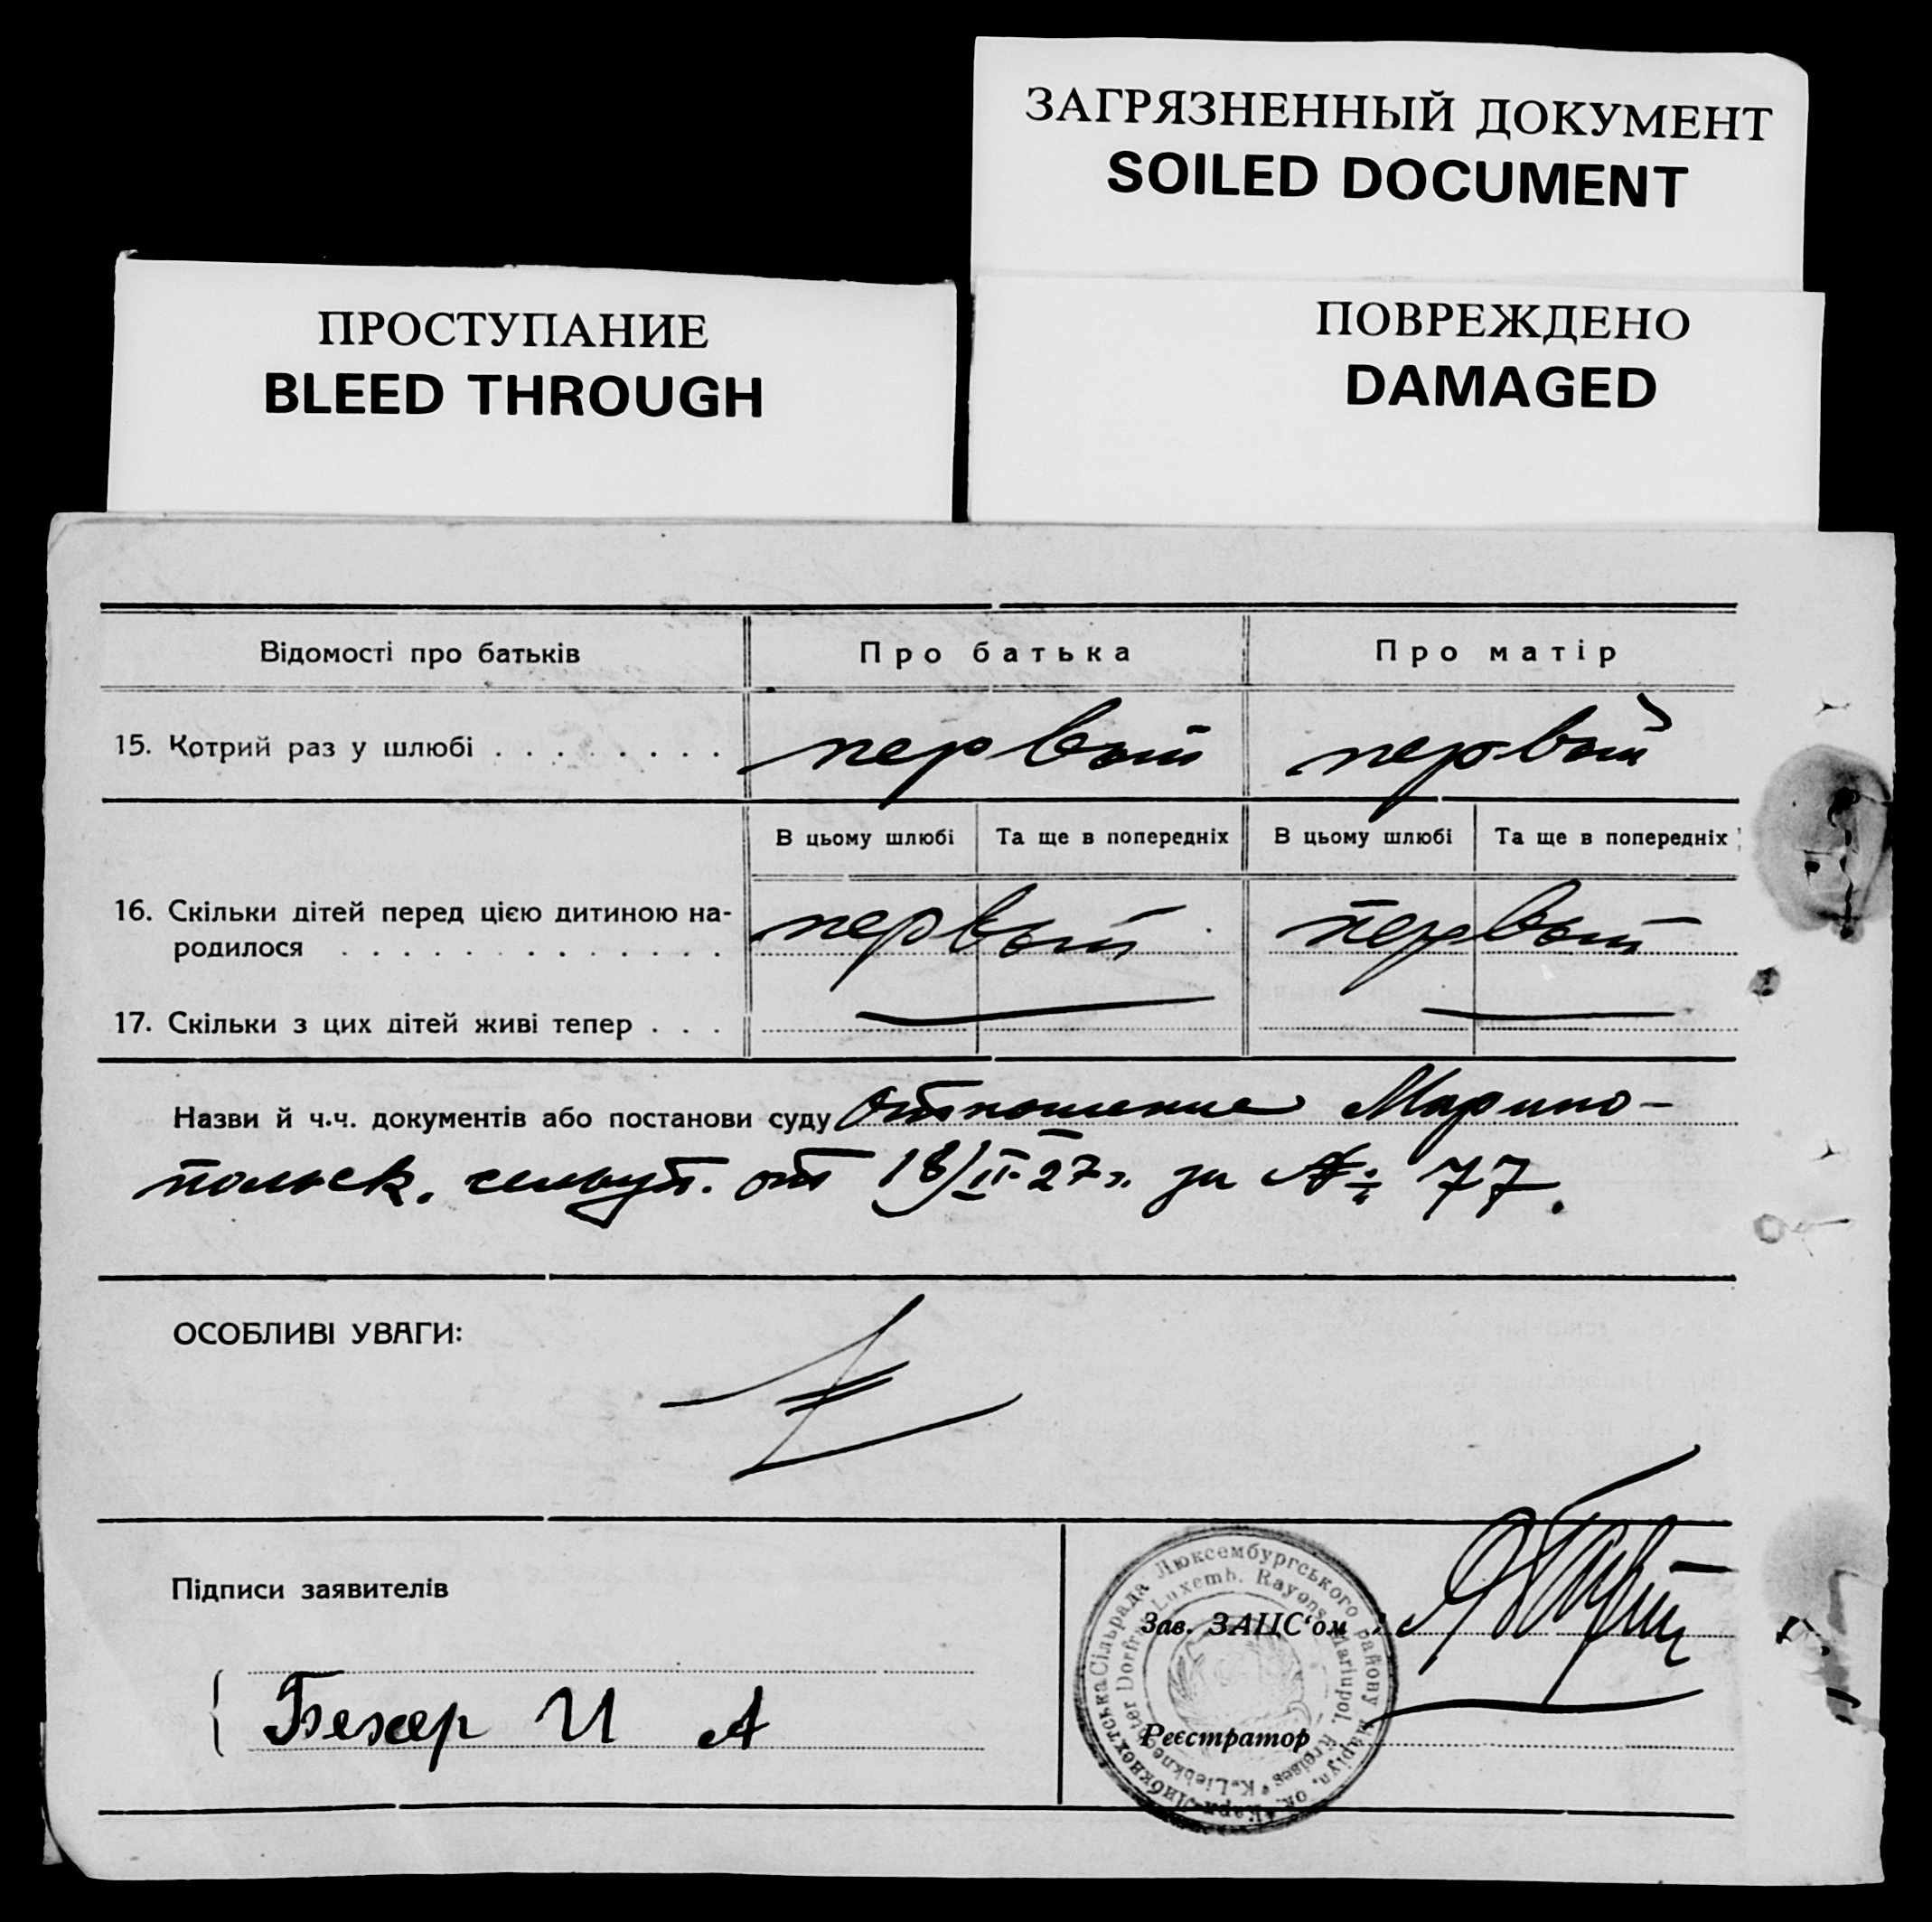 ЗАГРЯЗНЕННЫЙ ДОКУМЕНТ
SOILED DOCUMENT
ПРОСТУПАНИЕ
BLEED THROUGH
ПОВРЕЖДЕНО
DAMAGED
Відомості про батьків Про батька Про матір
15. Котрий раз у шлюбі . . . . . . . . первый первый
В цьому шлюбі Та ще в попередніх В цьому шлюбі Та ще в попередніх
16. Скільки дітей перед цією дитиною на-
родилося . . . . . . . . . . . . . первый первый
17. Скільки з цих дітей живі тепер . . . — —
Назви й ч.ч. документів або постанови суду Отношение Марино-
польск. от 18/II-27г. за № 77.
ОСОБЛИВІ УВАГИ:
Підписи заявителів
Зав. ЗАЦС‘ом
Бехер И А
Реєстратор
Карл-Лібкнехтська Сільрада Люксембургського району Маріуп. ок.
K. Liebknechter Dorfrat Luxemb. Rayons Mariupol. Kreises